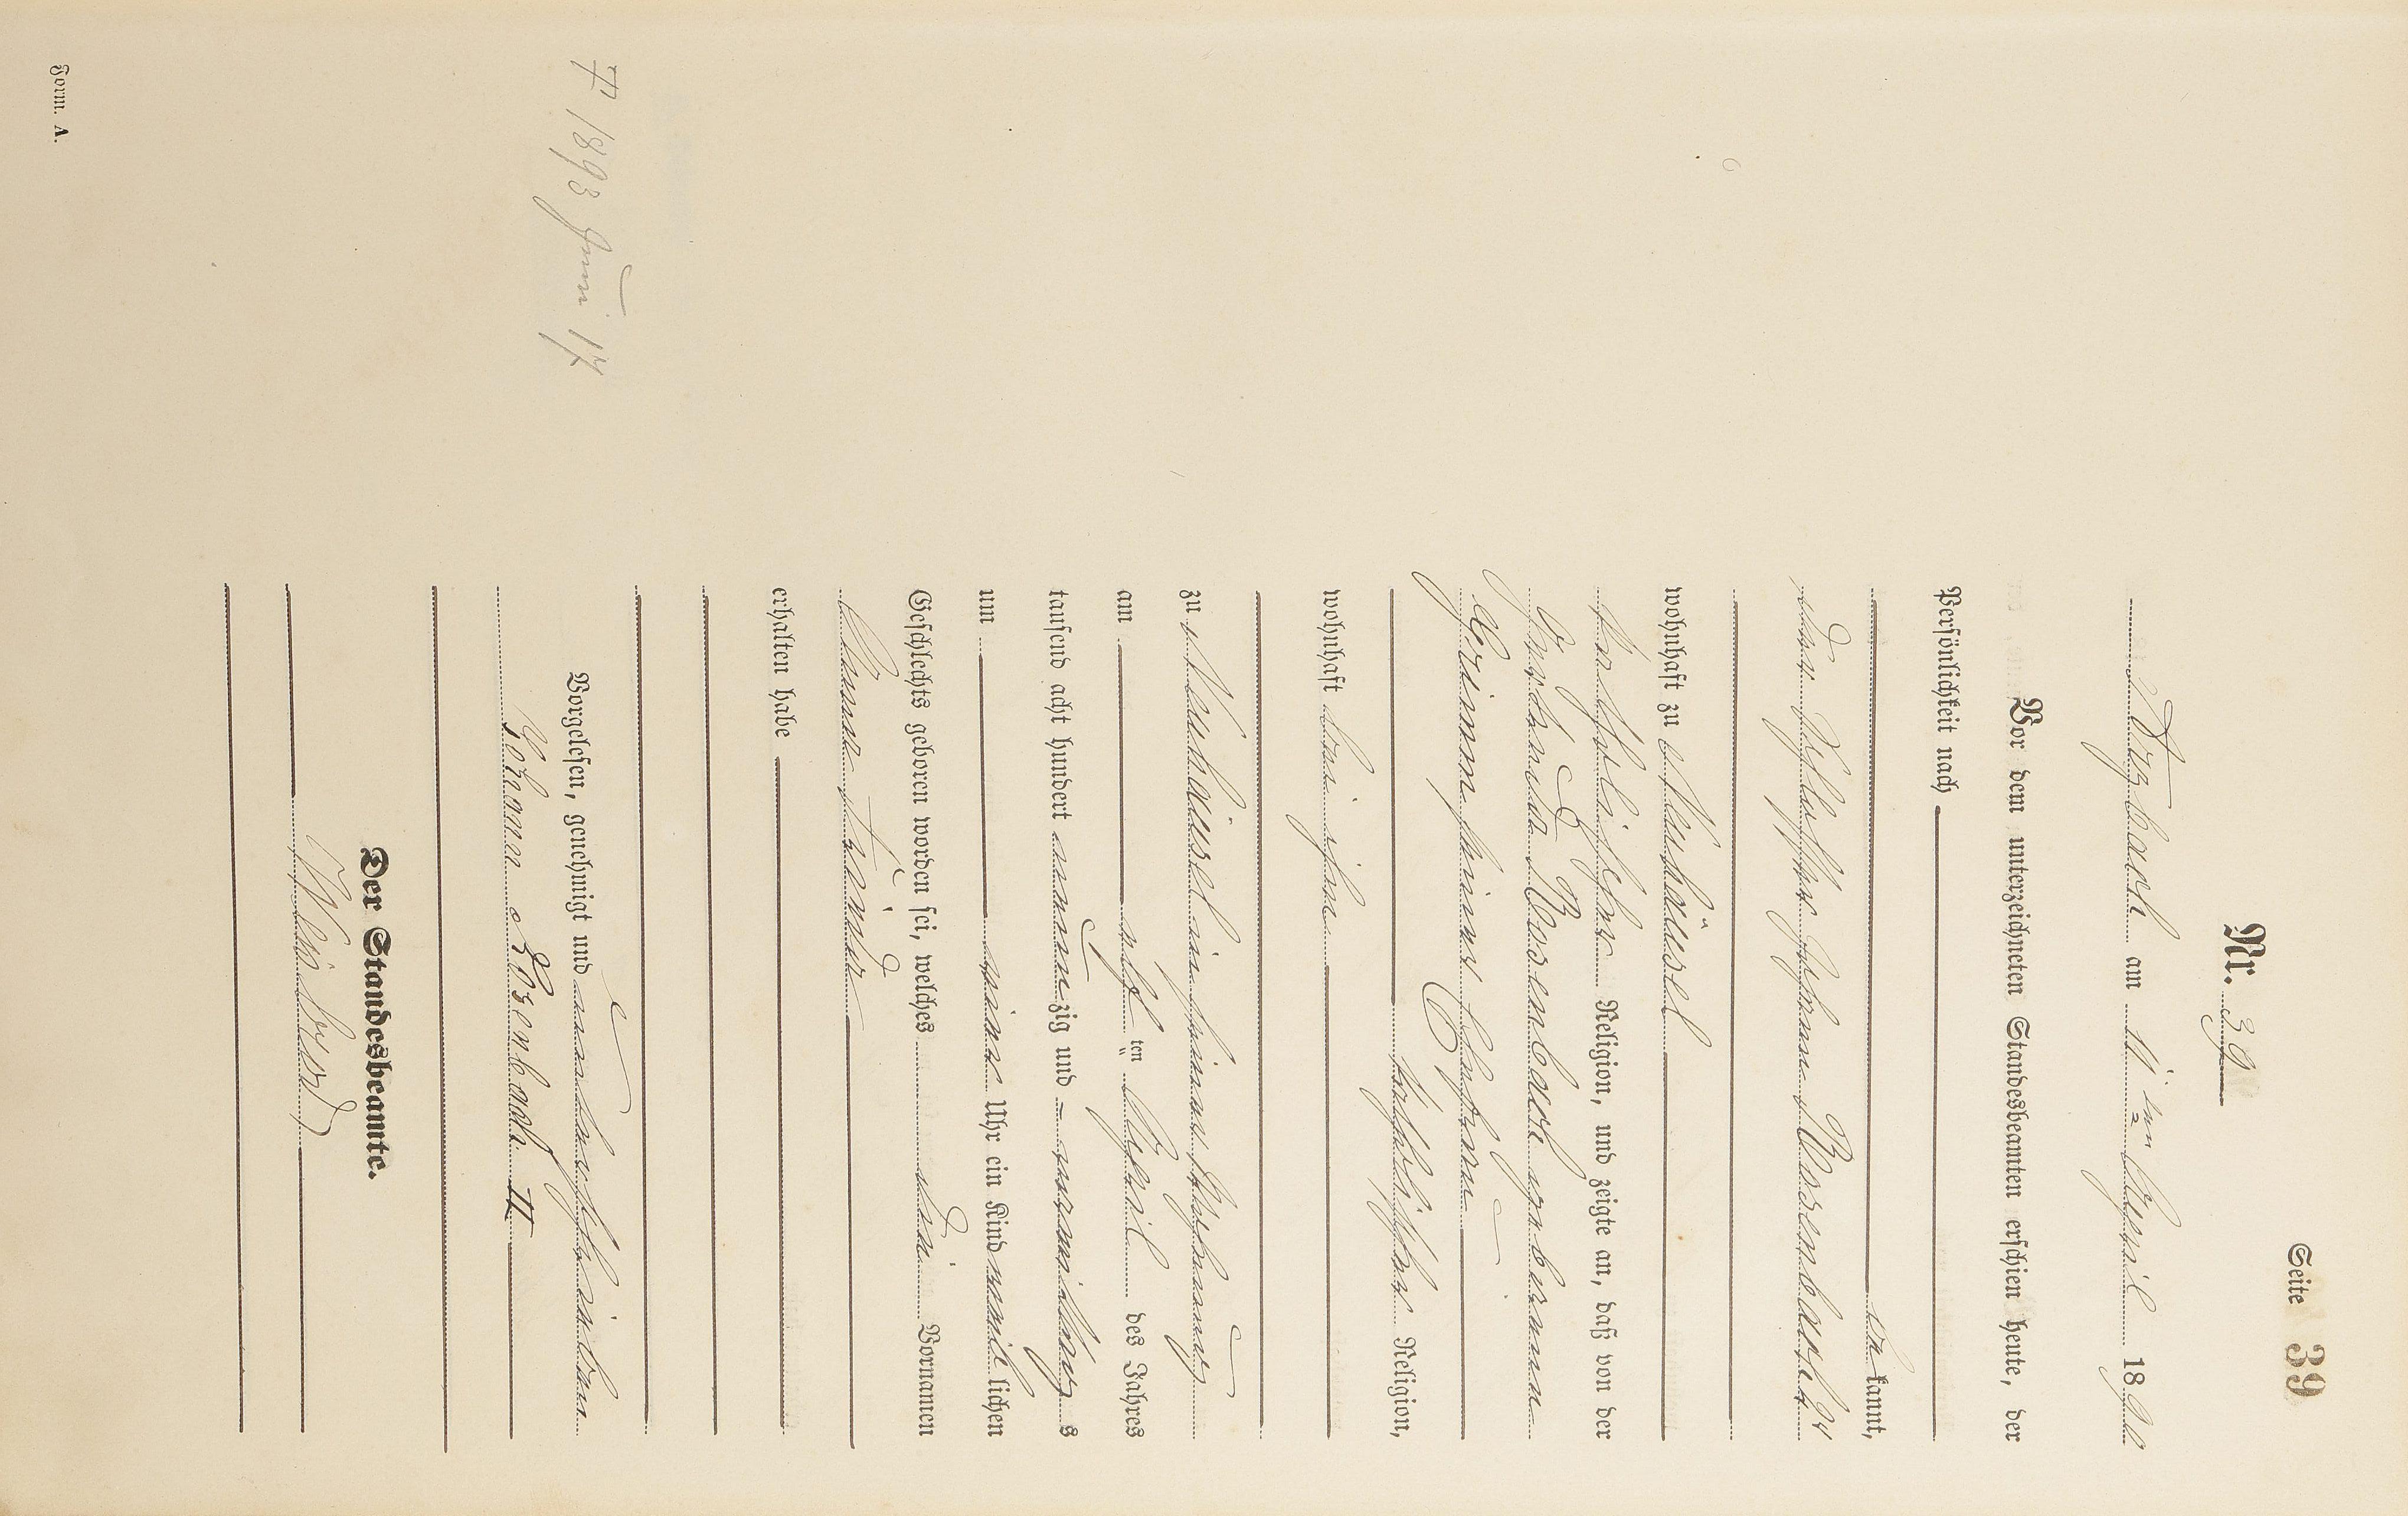 Seite 39
Nr. 39
Arzbach am 11ten April 1890
Vor dem unterzeichneten Standesbeamten erschien heute, der
Persönlichkeit nach
be kannt,
der Johann Rosenbach
wohnhaft zu Neuhäusel
katholischer Religion, und zeigte an, daß von der
Rosenbach geborenen
Grimm seiner Ehefrau
katholischer Religion,
wohnhaft bei ihm
zu Neuhäusel in seiner Wohnung
am elf ten April des Jahres
tausend acht hundert neun zig und = vormittag s
um Uhr ein Kind männ lichen
Geschlechts geboren worden sei, welches die Vornamen
erhalten habe
Vorgelesen, genehmigt und unterschrieben
Johann Rosenbach II
Der Standesbeamte.
† 1893 Juni 17
Form. A.